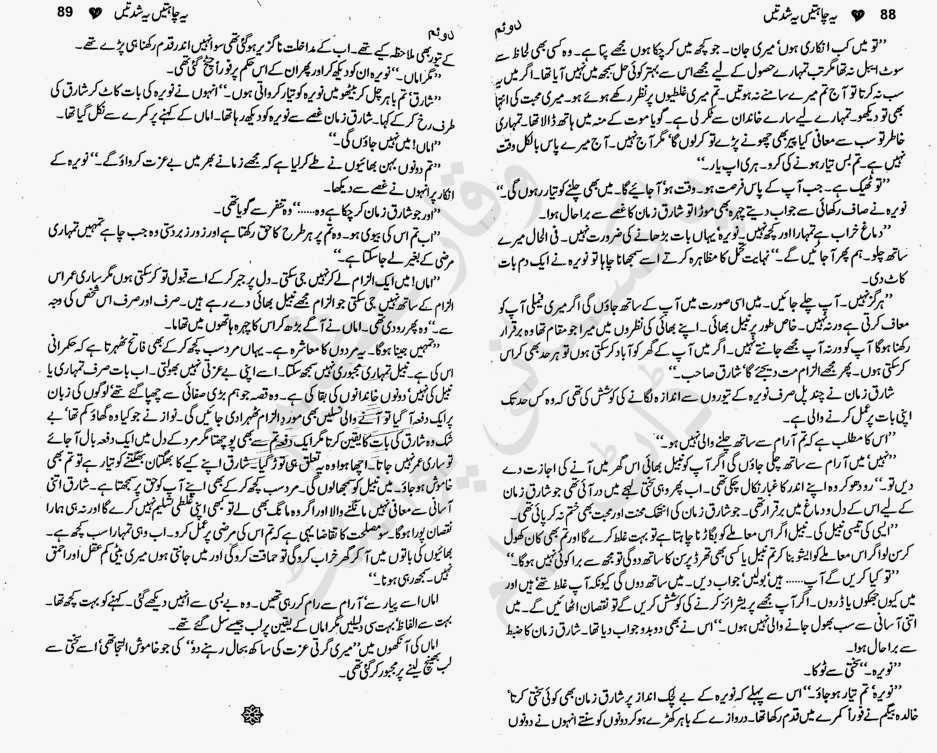 88 یہ چاہتیں یہ شدتیں
دوئم
’’تو میں کب انکاری ہوں‘ میری جان۔ جو کچھ میں کر چکا ہوں مجھے پتا ہے۔ وہ کسی بھی لحاظ سے
سوٹ ایبل نہ تھا مگر تب تمہارے حصول کے لیے مجھے اس سے بہتر کوئی حل سمجھ میں نہیں آیا تھا۔ اگر میں یہ
سب نہ کرتا تو آج تم میرے سامنے نہ ہوتیں۔ تم میری غلطیوں پر نظر رکھے ہوئے ہو۔ میری محبت کی انتہا
بھی تو دیکھو۔ تمہارے لیے سارے خاندان سے ٹکر لی ہے۔ گویا موت کے منہ میں ہاتھ ڈالا تھا۔ تمہاری
خاطر تو سب سے معافی کیا پیر بھی چھونے پڑے تو کر لوں گا‘ مگر آج نہیں۔ آج میرے پاس بالکل وقت
نہیں ہے۔ تم بس تیار ہونے کی کرو۔ ہری اپ یار۔‘‘
’’تو ٹھیک ہے۔ جب آپ کے پاس فرصت ہو۔ وقت ہو‘ آ جائیے گا۔ میں بھی چلنے کو تیار رہوں گی۔‘‘
نویرہ نے صاف رکھائی سے جواب دیتے چہرہ بھی موڑا تو شارق زمان کا غصے سے برا حال ہوا۔
’’دماغ خراب ہے تمہارا اور کچھ نہیں۔ نویرہ یہاں بات بڑھانے کی ضرورت نہیں۔ فی الحال میرے
ساتھ چلو۔ ہم پھر آ جائیں گے۔‘‘ نہایت تحمل کا مظاہرہ کرتے اسے سمجھانا چاہا تو نویرہ نے ایک دم بات
کاٹ دی۔
’’ہرگز نہیں۔ آپ چلے جائیں۔ میں اسی صورت میں آپ کے ساتھ جاؤں گی اگر میری فیملی آپ کو
معاف کرتی ہے ورنہ نہیں۔ خاص طور پر نبیل بھائی۔ اپنے بھائی کی نظروں میں میرا جو مقام تھا وہ برقرار
رکھنا ہوگا آپ کو ورنہ آپ مجھے جانتے نہیں۔ اگر میں آپ کے گھر کو آباد کر سکتی ہوں تو ہر حد بھی کراس
کر سکتی ہوں۔ پھر مجھے الزام مت دیجئے گا‘ شارق صاحب۔‘‘
شارق زمان نے چند پل صرف نویرہ کے تیوروں سے اندازہ لگانے کی کوشش کی تھی کہ وہ کس حد تک
اپنی بات پر عمل کرنے والی ہے۔
’’اس کا مطلب ہے کہ تم آرام سے ساتھ چلنے والی نہیں ہو۔‘‘
’’نہیں‘ میں آرام سے ساتھ چلی جاؤں گی اگر آپ کو نبیل بھائی اس گھر میں آنے کی اجازت دے
دیں تو۔‘‘ رو دھو کر وہ اپنے اندر کا غبار نکال چکی تھی۔ اب پھر وہی سختی لہجے میں در آئی تھی جو شارق زمان
کے لیے اس کے دل و دماغ میں برقرار تھی۔ جو شارق زمان کی انتھک محنت اور محبت بھی ختم نہ کر پائی تھی۔
’’ایسی کی تیسی نبیل کی۔ نبیل اگر اس معاملے کو بگاڑنا چاہتا ہے تو بہت غلط کرے گا اور تم بھی کان کھول
کر سن لو اگر اس معاملے کو ایشو بنا کر تم نبیل یا کسی بھی تھرڈ پرسن کا ساتھ دو گی تو مجھ سے برا کوئی نہیں ہوگا۔‘‘
’’تو کیا کریں گے آپ...... ہیں‘ بولیں‘ جواب دیں۔ میں ساتھ دوں گی کیونکہ آپ غلط تھے‘ ہیں اور
میں کیوں جھکوں یا ڈروں۔ اگر آپ مجھے پریشرائز کرنے کی کوشش کریں گے تو نقصان اٹھائیں گے۔ میں
اتنی آسانی سے سب بھول جانے والی نہیں ہوں۔‘‘ اس نے بھی دوبدو جواب دیا تھا۔ شارق زمان کا ضبط
سے برا حال ہوا۔
’’نویرہ۔‘‘ سختی سے ٹوکا۔
’’نویرہ‘ تم تیار ہو جاؤ۔‘‘ اس سے پہلے کہ نویرہ کے بے لچک انداز پر شارق زمان بھی کوئی سختی کرتا‘
خالدہ بیگم نے فوراً کمرے میں قدم رکھا تھا۔ دروازے کے باہر کھڑے ہو کر دونوں کو سنتے انہوں نے دونوں
یہ چاہتیں یہ شدتیں 89
دوئم
کے تیور بھی ملاحظہ کیے تھے۔ اب کے مداخلت ناگزیر ہو گئی تھی سو انہیں اندر قدم رکھنا ہی پڑے تھے۔
’’مگر اماں۔‘‘ نویرہ ان کو دیکھ کر اور پھر ان کے اس حکم پر فوراً چیخ گئی تھی۔
’’شارق‘ تم باہر چل کر بیٹھو میں نویرہ کو تیار کرواتی ہوں۔‘‘ انہوں نے نویرہ کی بات کاٹ کر شارق کی
طرف رخ کر کے کہا۔ شارق زمان غصے سے نویرہ کو دیکھ رہا تھا۔ اماں کے کہنے پر کمرے سے نکل گیا تھا۔
’’اماں! میں نہیں جاؤں گی۔‘‘
’’تم دونوں بہن بھائیوں نے طے کر لیا ہے کہ مجھے زمانے بھر میں بے عزت کرواؤ گے۔‘‘ نویرہ کے
انکار پر انہوں نے غصے سے دیکھا۔
’’اور جو شارق زمان کر چکا ہے وہ......‘‘ وہ تنفر سے گویا تھی۔
’’اب تم اس کی بیوی ہو۔ وہ تم پر ہر طرح کا حق رکھتا ہے اور زور زبردستی وہ جب چاہے تمہیں تمہاری
مرضی کے بغیر لے جا سکتا ہے۔‘‘
’’اماں! میں ایک الزام لے کر نہیں جی سکتی۔ دل پر جبر کر کے اسے قبول تو کر سکتی ہوں مگر ساری عمر اس
الزام کے ساتھ نہیں جی سکتی جو الزام مجھے نبیل بھائی دے رہے ہیں۔ صرف اور صرف اس شخص کی وجہ
سے۔‘‘ وہ پھر رو دی تھی۔ اماں نے آگے بڑھ کر اس کا چہرہ ہاتھوں میں تھاما۔
’’تمہیں جینا ہوگا۔ یہ مردوں کا معاشرہ ہے۔ یہاں مرد سب کچھ کر کے بھی فاتح ٹھہرتا ہے کہ حکمرانی
اس کی ہے۔ نبیل تمہاری مجبوری نہیں سمجھ سکتا۔ اسے اپنی بے عزتی نہیں بھولتی۔ اب بات صرف تمہاری یا
نبیل کی نہیں‘ دونوں خاندانوں کی بقا کی ہے۔ وہ قصہ جو ہم بڑی صفائی سے چھپا گئے تھے‘ لوگوں کی زبان
پر ایک دفعہ آ گیا تو آنے والی نسلیں بھی مورد الزام ٹھہرا دی جائیں گی۔ نواز نے جو کیا وہ گھاؤ کم تھا‘ بے
شک وہ شارق کی بات کا یقین کرتا مگر ایک دفعہ تم سے بھی پوچھتا مگر مرد کے دل میں ایک دفعہ بال آ جائے
تو ساری عمر نہیں جاتا۔ اچھا ہوا وہ یہ تعلق ہی توڑ گیا۔ شارق اپنے کیے کا بھگتان بھگتنے کو تیار ہے تو تم بھی
خاموش ہو جاؤ۔ میں نبیل کو سمجھا لوں گی۔ مرد سب کچھ کر کے بھی اپنے آپ کو حق پر سمجھتا ہے۔ شارق اتنی
آسانی سے معافی نہیں مانگنے والا اور اگر وہ مانگ بھی لے تو کبھی اپنی غلطی تسلیم نہیں کرے گا اور نہ ہی ہمارا
نقصان پورا ہوگا۔ سو مصلحت کا تقاضا یہی ہے کہ تم اس کی مرضی پر عمل کرو۔ اب وہی تمہارا سب کچھ ہے۔
بھائیوں کی باتوں میں آ کر گھر خراب کرو گی تو حماقت کرو گی اور میں جانتی ہوں میری بیٹی کم عقل اور احمق
نہیں۔ سمجھ رہی ہو نا۔‘‘
اماں اسے پیار سے‘ آرام سے رام کر رہی تھیں۔ وہ بے بسی سے انہیں دیکھے گئی۔ کہنے کو بہت کچھ تھا۔
بہت سے الفاظ‘ بہت سی دلیلیں مگر اماں کے یقین پر لب جیسے سل گئے تھے۔
اماں کی آنکھوں میں ’’میری گرتی عزت کی ساکھ بحال رہنے دو‘‘ کی جو خاموش التجا تھی‘ اسے سختی سے
لب بھینچ لینے پر مجبور کر گئی تھی۔